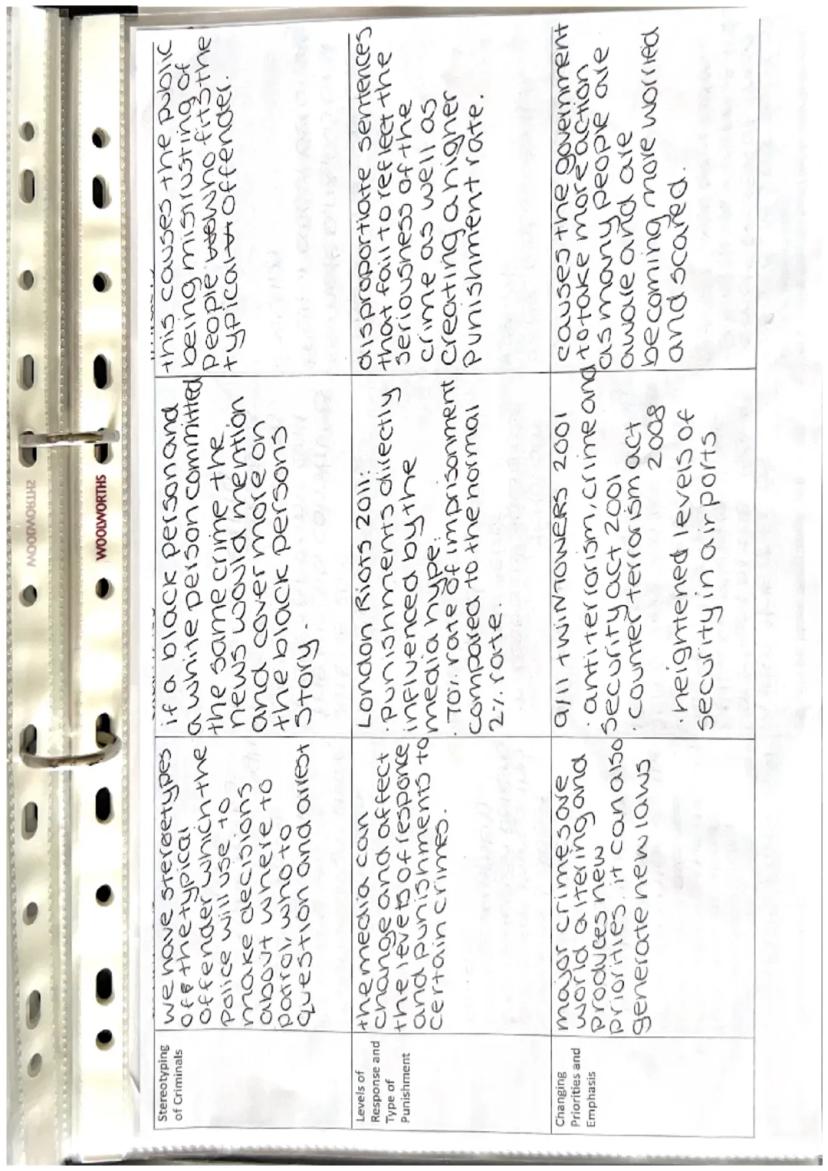 WOOLWORTHS
WOOLWORTHS
Stereotyping
of Criminals
we have stereotypes
off the typical
offender which the
police will use to
make decisions
about where to
patrol, who to
question and arrest
if a black person and
a white person committed
the same crime the
news would mention
and cover more on
the black persons
story.
this causes the public
being mistrusting of
people who fits the
typical offender.
Levels of
Response and
Type of
Punishment
the media can
change and affect
the levels of responce
and punishments to
certain crimes.
London Riots 2011:
· punishments directly
influenced by the
media hype.
· 70% rate of imprisonment
compared to the normal
2% rate.
disproportiate sentences
that fail to reflect the
seriousness of the
crime as well as
creating a higher
punishment rate.
Changing
Priorities and
Emphasis
major crimes are
world altering and
produces new
priorities. it can also
generate new laws
9/11 TWIN TOWERS 2001
· anti terrorism, crime and
security act 2001
· counter terrorism act
2008
· heightened levels of
security in airports
causes the government
to take more action
as many people are
aware and are
becoming more worried
and scared.